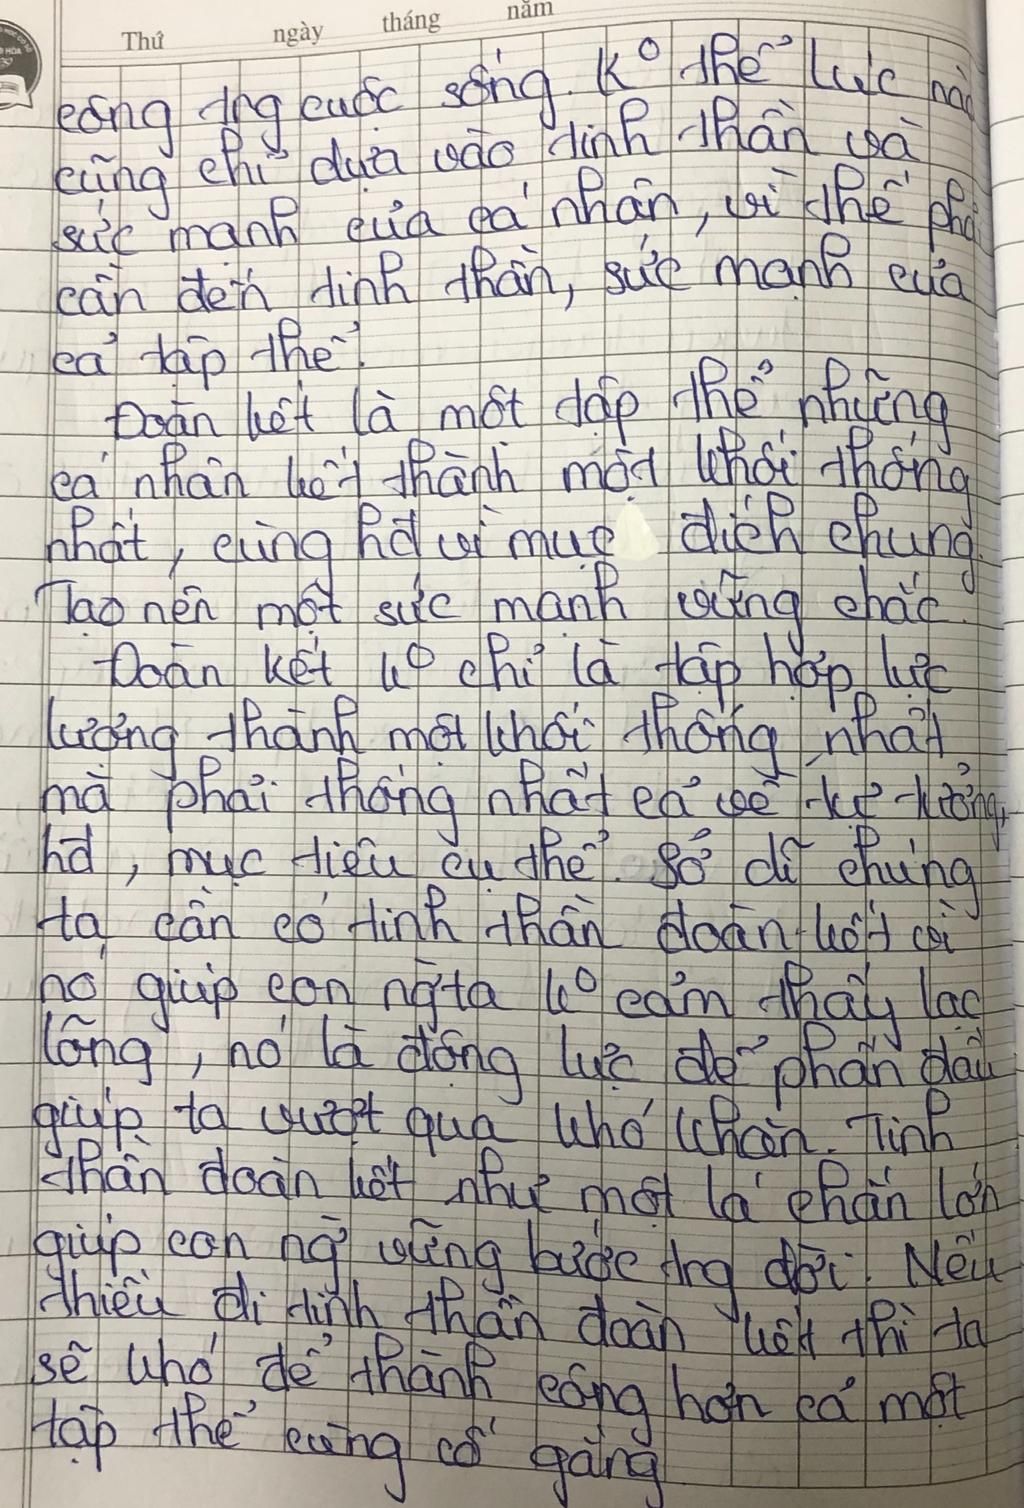 Thứ ngày tháng năm
công trg cuộc sống. Ko thể lúc nào
cũng chỉ dựa vào tinh thần và
sức mạnh của cá nhân, vì thế phải
cần đến tinh thần, sức mạnh của
cả tập thể.
Đoàn kết là một tập thể những
cá nhân kết thành một khối thống
nhất, cùng hđ vì mục đích chung.
Tạo nên một sức mạnh vững chắc.
Đoàn kết ko chỉ là tập hợp lực
lượng thành một khối thống nhất
mà phải thống nhất cả về tư tưởng,
hđ, mục tiêu cụ thể. Sở dĩ chúng
ta cần có tinh thần đoàn kết vì
nó giúp con ngta ko cảm thấy lạc
lõng, nó là động lực để phấn đấu
giúp ta vượt qua khó khăn. Tinh
thần đoàn kết như một lá chắn lớn
giúp con ng vững bước trg đời. Nếu
thiếu đi tinh thần đoàn kết thì ta
sẽ khó để thành công hơn cả một
tập thể cùng cố gắng